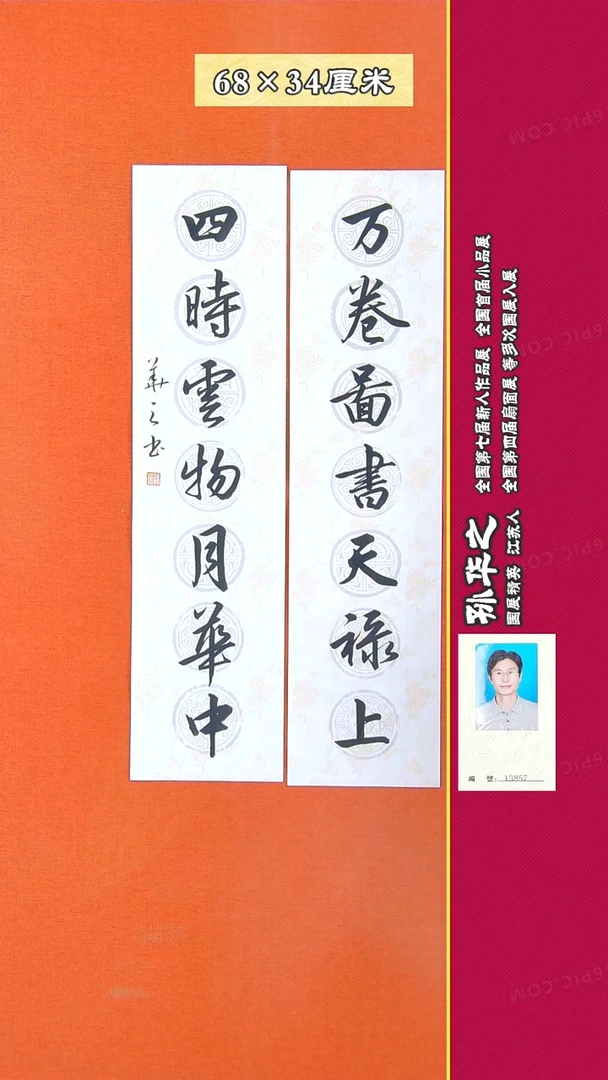 68×34厘米
万卷图書天禄上
四時雲物月華中
華之书
孙华之
国展精英 江苏人
全国第七届新人作品展 全国首届小品展
全国第四届扇面展 等多次国展入展
編 號: 13857
6PIC.COM